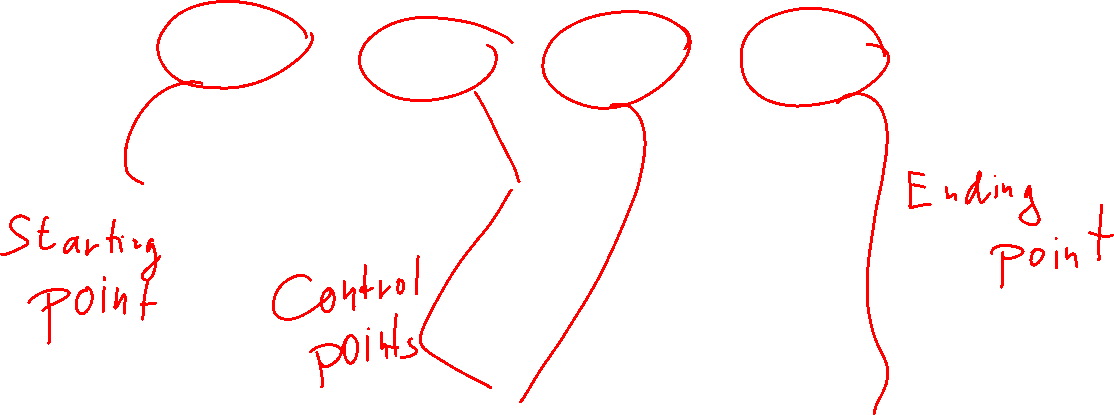 Starting
point
Control
points
Ending
point